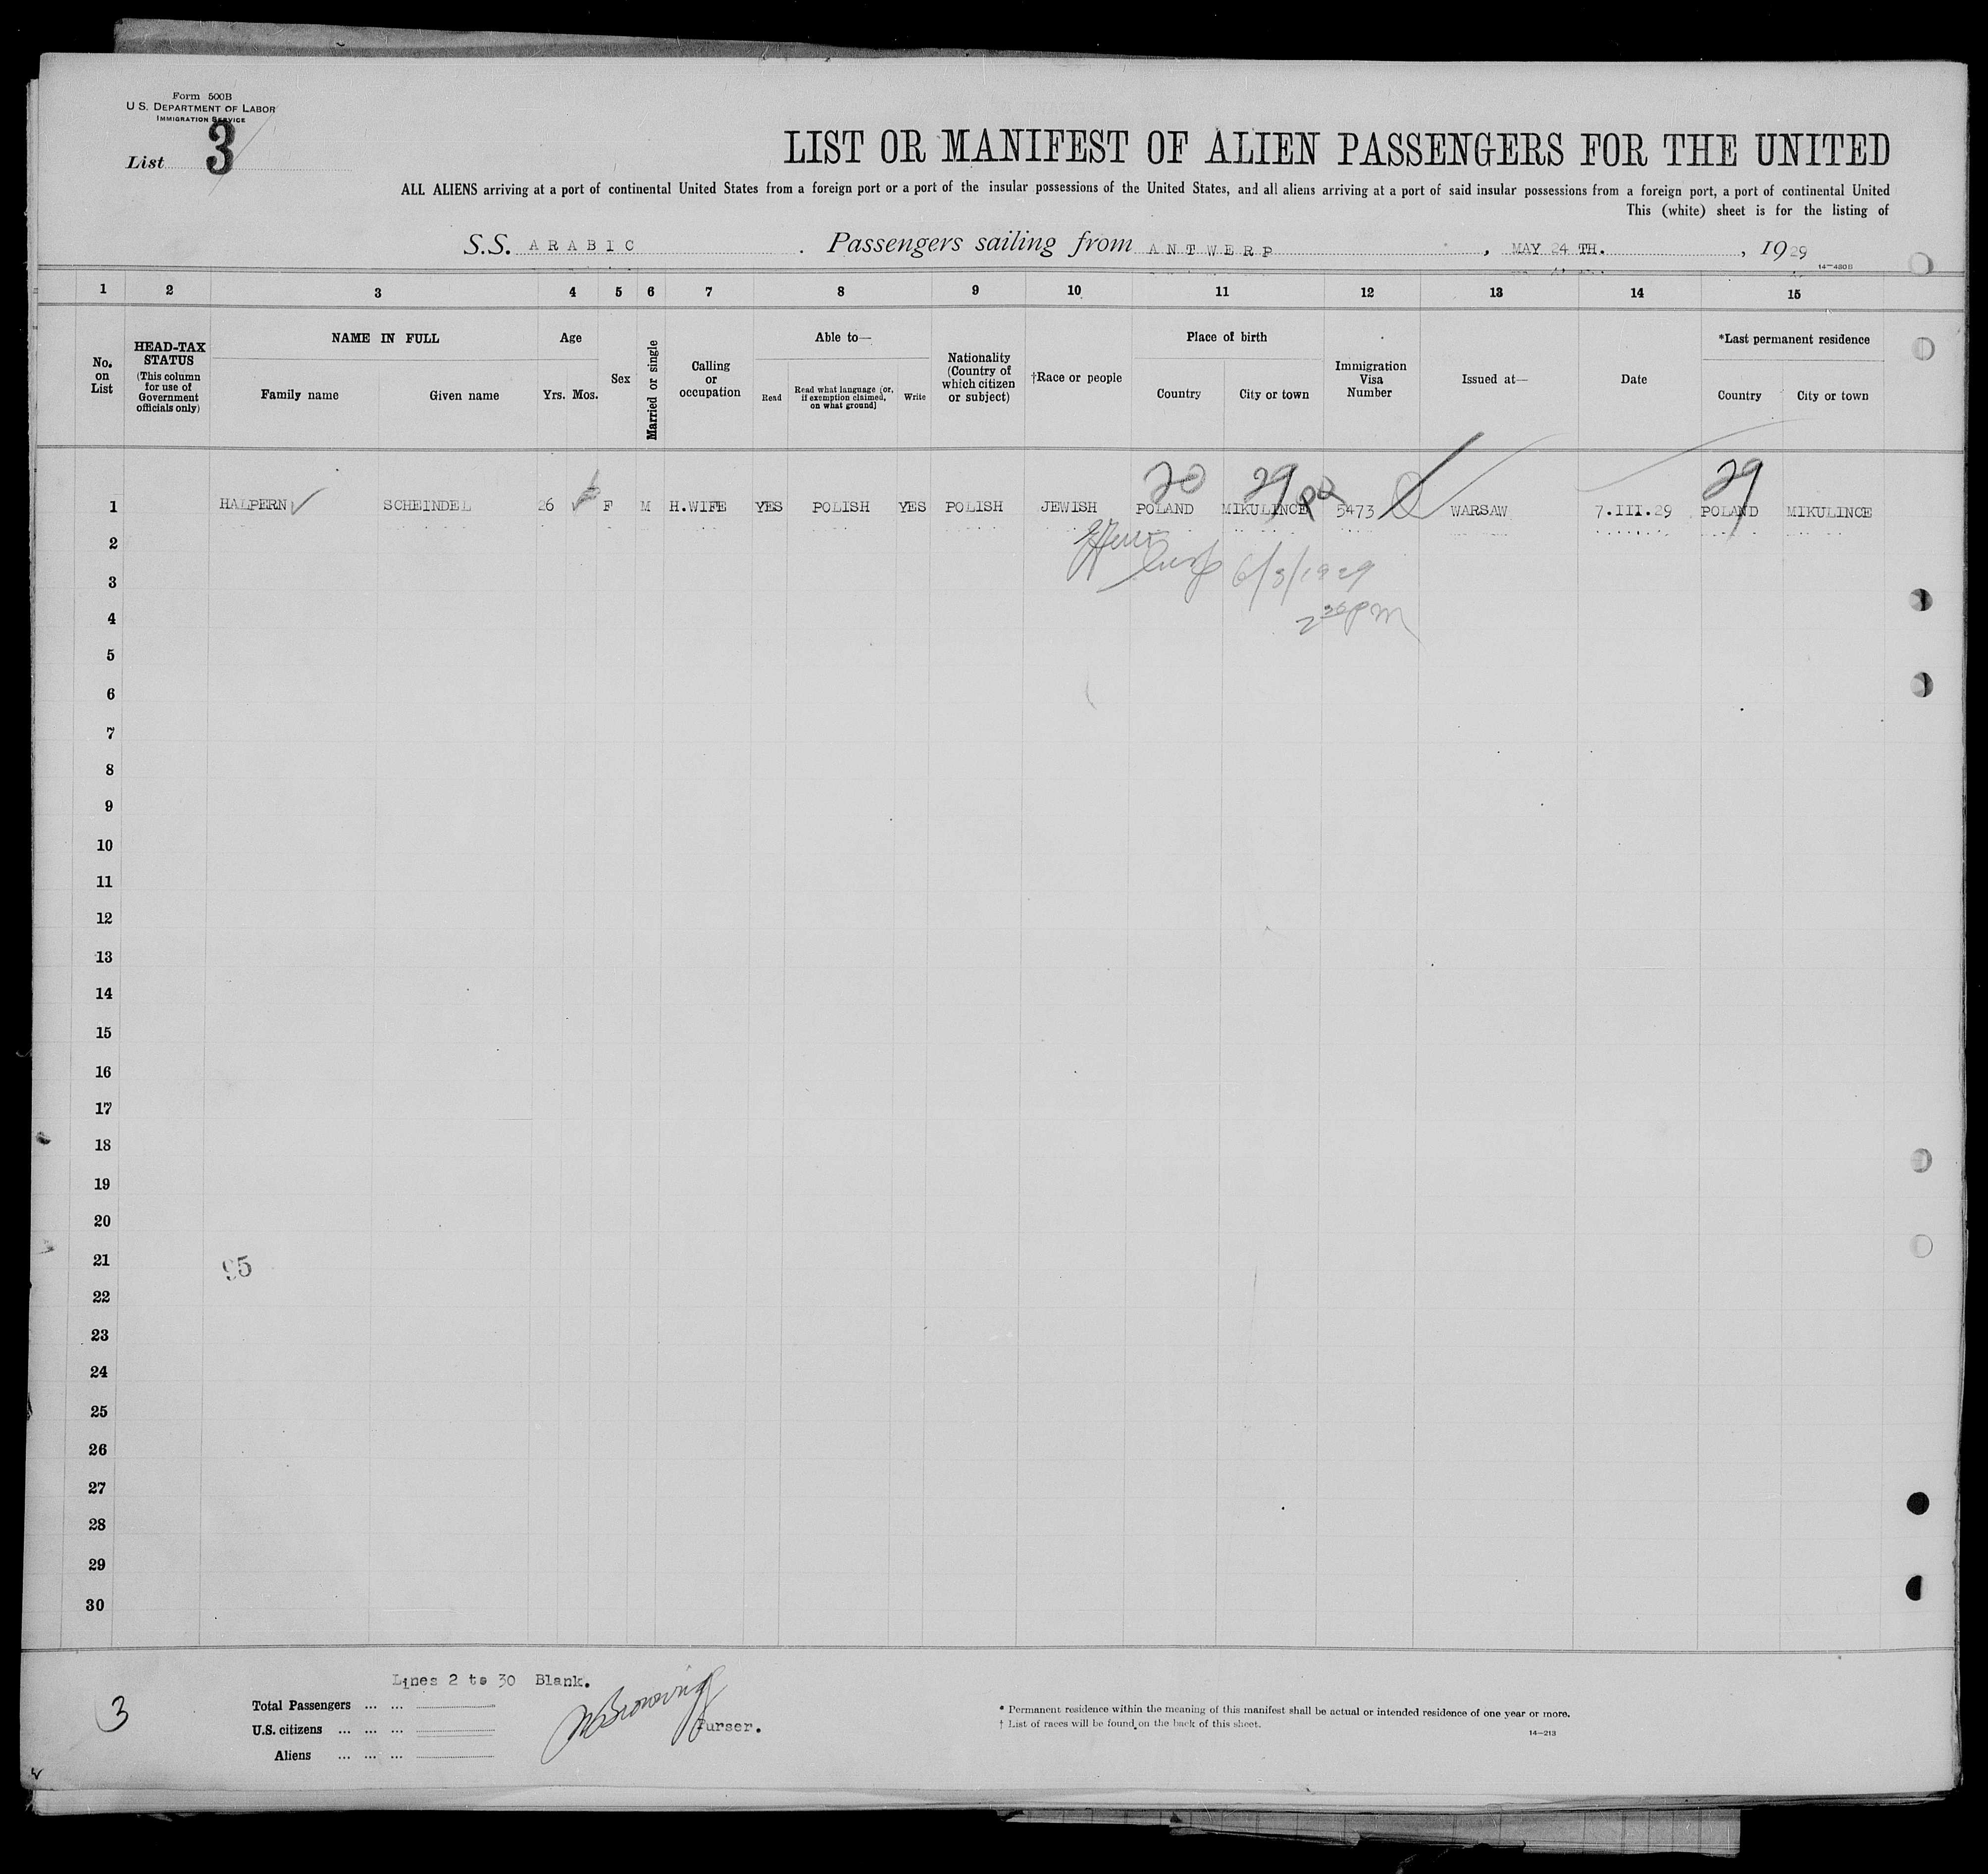 Form 500B
U.S. DEPARTMENT OF LABOR
IMMIGRATION SERVICE
List 3
LIST OR MANIFEST OF ALIEN PASSENGERS FOR THE UNITED
ALL ALIENS arriving at a port of continental United States from a foreign port or a port of the insular possessions of the United States, and all aliens arriving at a port of said insular possessions from a foreign port, a port of continental United
This (white) sheet is for the listing of
S.S. ARABIC. Passengers sailing from ANTWERP, MAY 24 TH., 1929
14—480B
1 2 3 4 5 6 7 8 9 10 11 12 13 14 15
No. on List
HEAD-TAX STATUS (This column for use of Government officials only)
NAME IN FULL
Family name Given name
Age
Yrs. Mos.
Sex
Married or single
Calling or occupation
Able to—
Read
Read what language (or, if exemption claimed, on what ground)
Write
Nationality (Country of which citizen or subject)
†Race or people
Place of birth
Country City or town
Immigration Visa Number
Issued at—
Date
*Last permanent residence
Country City or town
20 29 29
1 HALPERN SCHEINDEL 26 F M H.WIFE YES POLISH YES POLISH JEWISH POLAND MIKULINCE 5473 WARSAW 7.III.29 POLAND MIKULINCE
2
3 6/3/1929
4 2 30 PM
5
6
7
8
9
10
11
12
13
14
15
16
17
18
19
20
21 95
22
23
24
25
26
27
28
29
30
Lines 2 to 30 Blank.
3
Total Passengers ... ...
U.S. citizens ... ... ...
Aliens ... ... ...
Browning
Purser.
* Permanent residence within the meaning of this manifest shall be actual or intended residence of one year or more.
† List of races will be found on the back of this sheet.
14—213